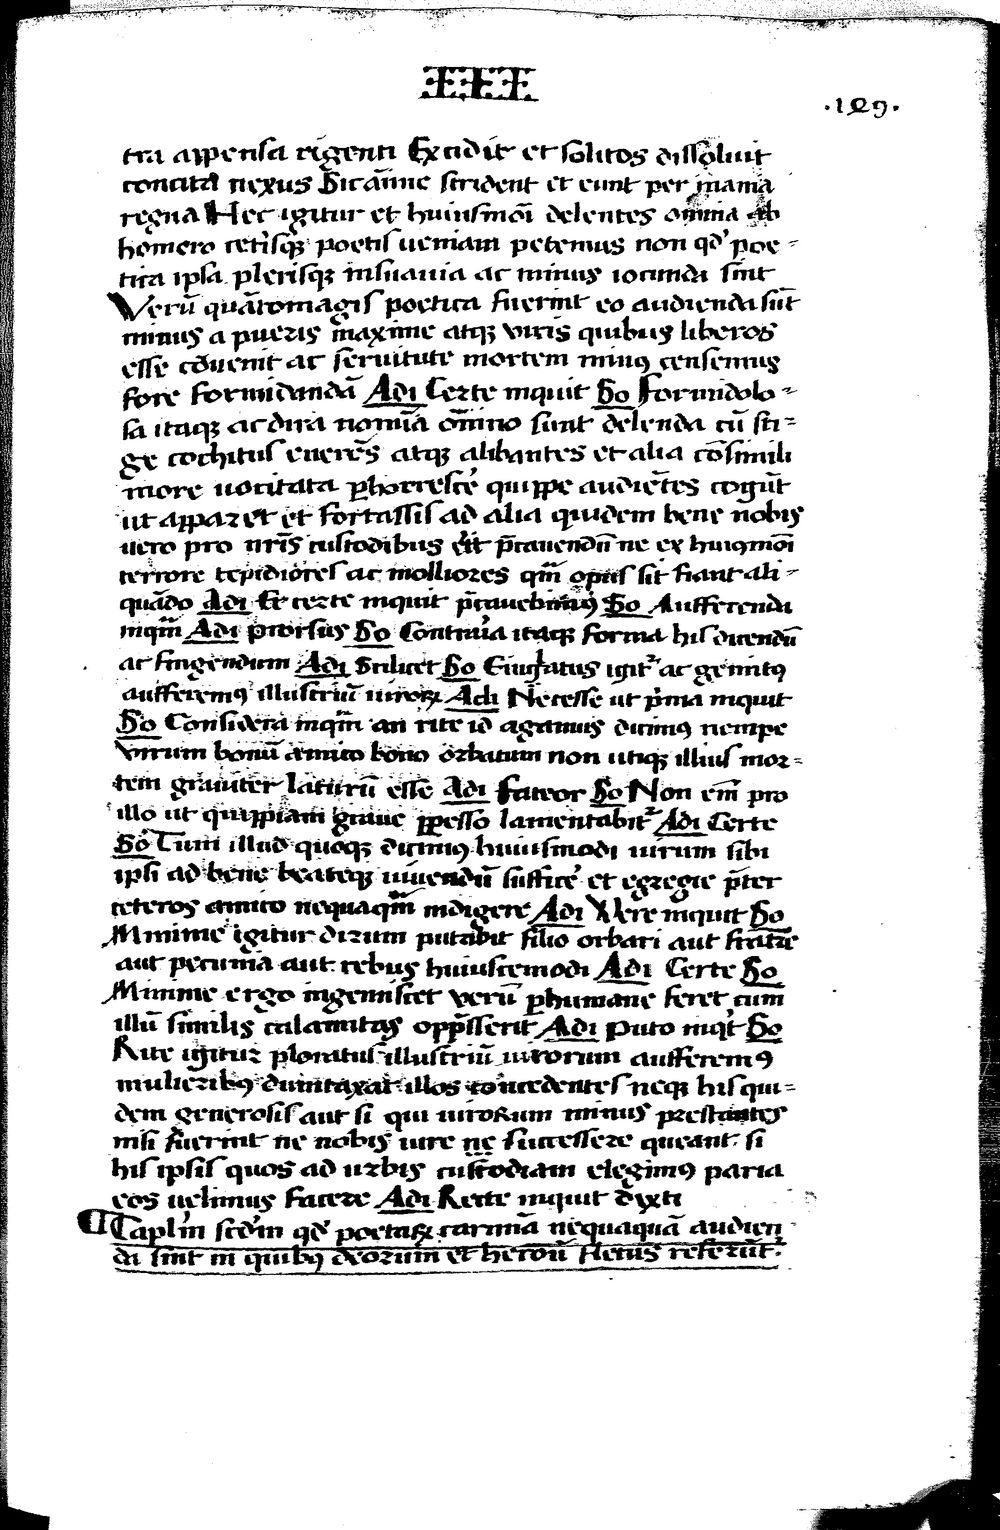 III
.129.
tra appensa rigenti Excidit et solitos dissoluit
concita nexus Sic aīme strident et eunt per inania
regna Hec igitur et huiusmōi delentes omnia ab
homero cetisqꝫ poetis ueniam petemus non qđ poe-
tica ipsa plerisqꝫ insuauia ac minus iocunda sint
Verū quātomagis poetica fuerint eo audienda sūt
minus a pueris maxime atqꝫ viris quibus liberos
esse cōuenit ac seruitute mortem minꝰ censemus
fore formidandā Adi Certe inquit So Formidolo-
sa itaqꝫ ac dira nomīa oīmno sunt delenda cū sti-
ge cochitus enerēs atqꝫ alibantes et alia cōsimili
more uocitata ꝑhorrescē quippe audiētes cogūt
ut apparet et fortassis ad alia quidem bene nobis
uero pro nrīs custodibus erit p̄cauendū ne ex huiꝰmōi
terrore tepidiores ac molliores qm̄ opus sit fiant ali-
quādo Adi Et certe inquit p̄cauebimꝰ So Aufferenda
inqm̄ Adi prorsus So Contraria itaqꝫ forma his dicendū
ac fingendum Adi Scilicet So Eiulatus igit᷑ ac gemitꝰ
aufferemꝰ illustriū uiroꝝ Adi Necesse ut p̄ma inquit
So Considera inqm̄ an rite id agamus dicimꝰ nempe
virum bonū amico bono orbatum non utiqꝫ illius mor-
tem grauiter laturū esse Adi Fateor So Non em̄ pro
illo ut quippiam graue ꝑpesso lamentabit᷑ Adi Certe
So Tum illud quoqꝫ dicimꝰ huiusmodi uirum sibi
ipsi ad bene beateqꝫ uiuendū sufficē et egregie p̄ter
ceteros amico nequaqm̄ indigere Adi Vere inquit So
Minime igitur dirum putabit filio orbari aut fratre
aut pecunia aut rebus huiuscemodi Adi Certe So
Minime ergo ingemiscet verū ꝑhumane feret cum
illū similis calamitas opp̄sserit Adi Puto inqt So
Rite igitur ploratus illustriū uirorum aufferemꝰ
mulieribꝰ duntaxat illos concedentes neqꝫ his qui-
dem generosis aut si qui uirorum minus prestantes
nisi fuerint ne nobis iure ne succesere queant si
his ipsis quos ad urbis custodiam elegimꝰ paria
eos uelimus facere Adi Recte inquit dixti
Caplm̄ scdm̄ qđ poetaꝝ carmīa nequaquā audien
da sint in quibꝰ deorum et heroū fletus referūt᷑.